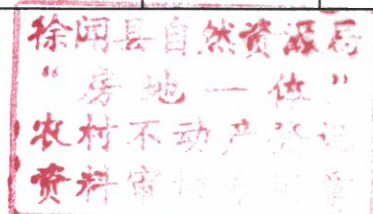 徐闻县自然资源局
“房地一体”
农村不动产登记
资料审